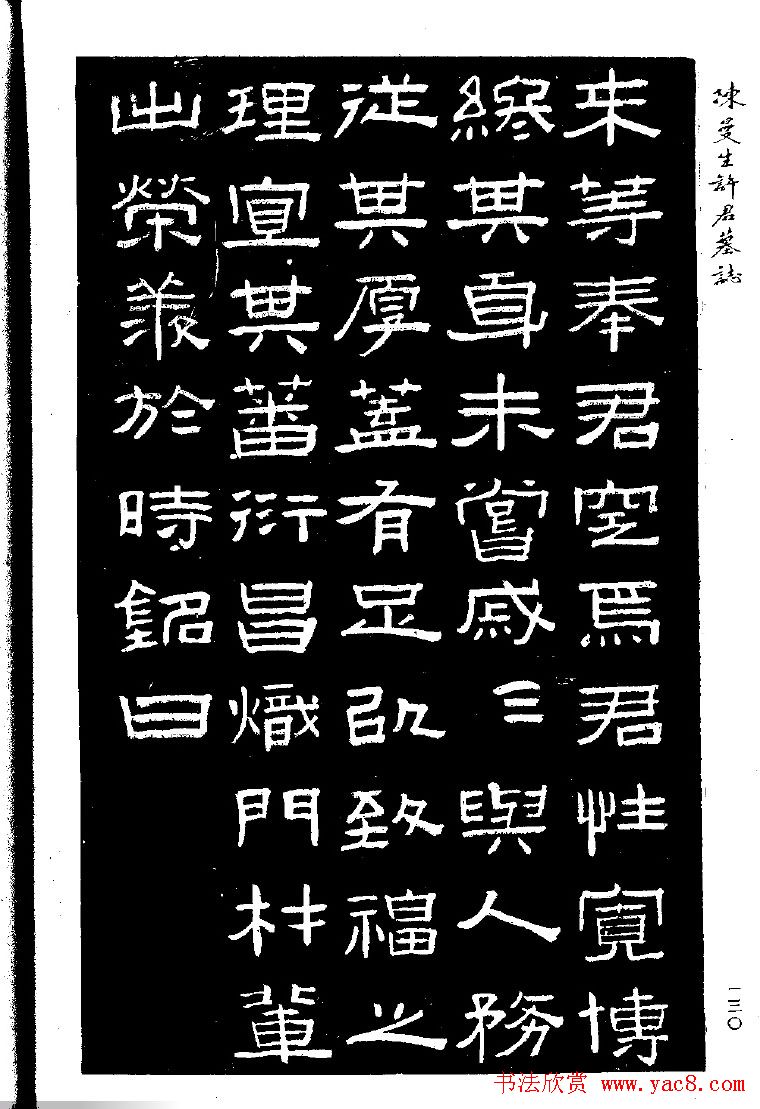 陳曼生許君墓誌
来等奉君窆焉君性寬博
終其身未嘗戚戚與人務
從其厚蓋有足以致福之
理宜其蕃衍昌熾門材輩
出榮於時銘曰
一三〇
书法欣赏 www.yac8.com